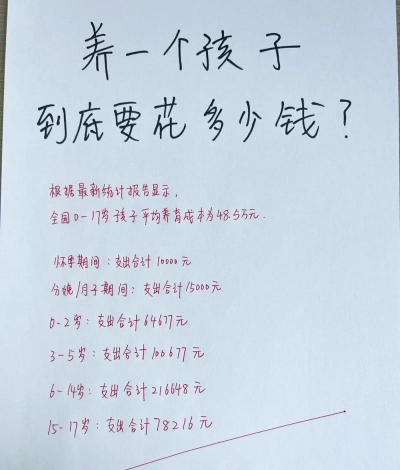 养一个孩子
到底要花多少钱？
根据最新统计报告显示，
全国0-17岁孩子平均养育成本为48.5万元.
怀孕期间：支出合计10000元
分娩/月子期间：支出合计15000元
0-2岁：支出合计64677元
3-5岁：支出合计100677元
6-14岁：支出合计216648元
15-17岁：支出合计78216元